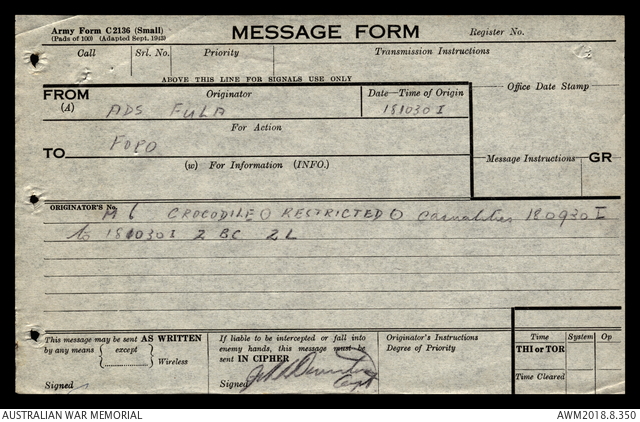 Army Form C2136 (Small)
(Pads of 100) (Adapted Sept., 1943)
MESSAGE FORM
Register No.
Call
Srl. No.
Priority
Transmission Instructions
ABOVE THIS LINE FOR SIGNALS USE ONLY
FROM
(A)
Originator
ADS FULA
Date—Time of Origin
181030 I
Office Date Stamp
For Action
TO
FOPO
(w) For Information (INFO.)
Message Instructions
GR
ORIGINATOR'S No.
M 6 CROCODILE O RESTRICTED O Casualities 180930 I
to 181030 I 2 BC 2 L
This message may be sent AS WRITTEN
by any means { except } Wireless
Signed
If liable to be intercepted or fall into
enemy hands, this message must be
sent IN CIPHER
Signed Capt
Originator's Instructions
Degree of Priority
Time
System
Op
THI or TOR
Time Cleared
AUSTRALIAN WAR MEMORIAL
AWM2018.8.350